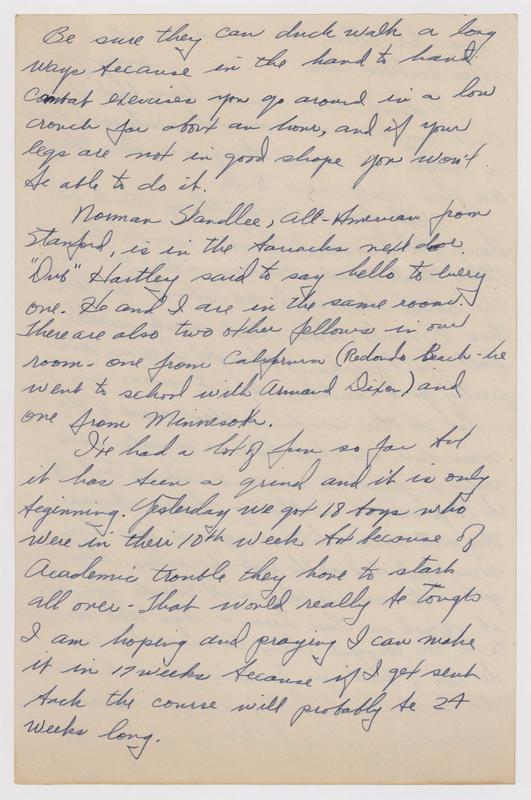 Be sure they can duck walk a long
ways because in the hand to hand
Combat exercises you go around in a low
crouch for about an hour, and if your
legs are not in good shape you won't
be able to do it.
Norman Standlee, All-American from
Stanford, is in the barracks next door.
"Dub" Hartley said to say hello to every
one. He and I are in the same room.
There are also two other fellows in our
room - one from California (Redondo Beach - he
went to school with Armand Dixon) and
one from Minnesota.
I've had a lot of fun so far but
it has been a grind and it is only
beginning. Yesterday we got 18 boys who
were in their 10th week but because of
Academic trouble they have to start
all over - That would really be tough
I am hoping and praying I can make
it in 17 weeks because if I get sent
back the course will probably be 24
weeks long.